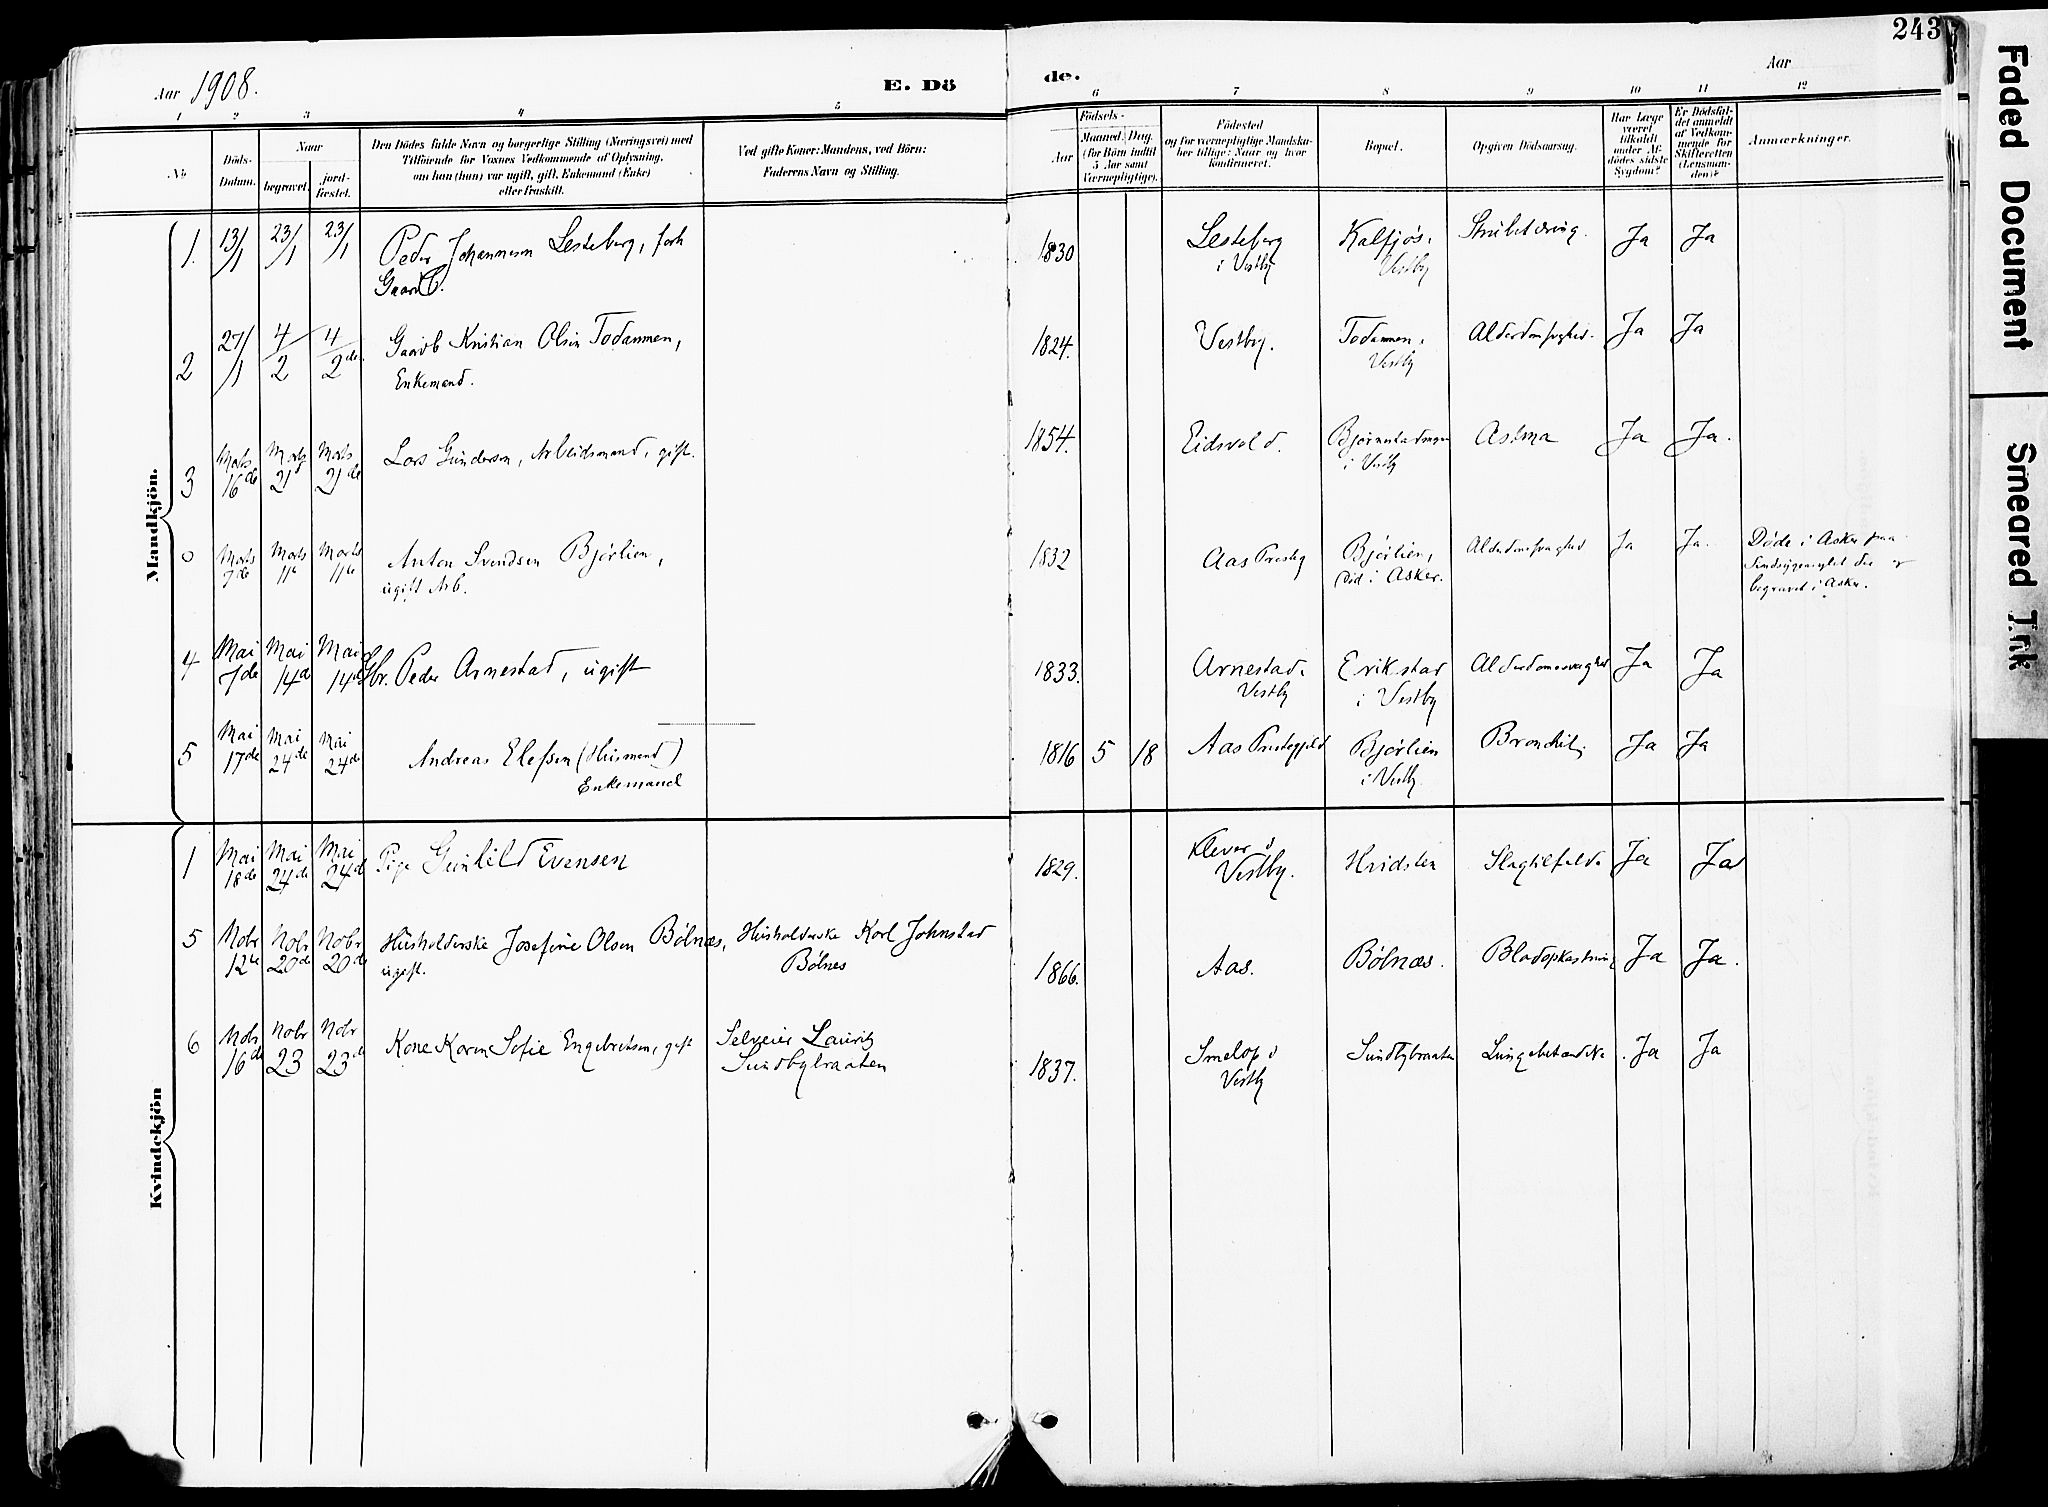 243
Aar 1908.
E. Dö
de.
Aar
1 2 3 4 5
6 7 8 9 10 11 12
No
Döds-Datum.
Naar
begravet.
jord-fæstet.
Den Dödes fulde Navn og borgerlige Stilling (Næringsvei) med
Tilföiende for Voxnes Vedkommende af Oplysning,
om han (hun) var ugift, gift, Enkemand (Enke)
eller fraskilt.
Ved gifte Koner: Mandens, ved Börn:
Faderens Navn og Stilling.
Födsels-
Aar
Maaned. Dag.
(for Börn indtil
5 Aar samt
Værnepligtige).
Födested
og for værnepligtige Mandskaber tillige: Naar og hvor
konfirmeret.
Bopæl.
Opgiven Dödsaarsag.
Har Læge
været
tilkaldt
under Afdödes sidste
Sygdom?
Er Dödsfaldet anmeldt
af Vedkommende for
Skifteretten
(Lensmanden)?
Anmærkninger.
Mandkjön.
1. 13/1 23/1 23/1 Peder Johannesen Lesteberg, forh
Gaardb.
1830 Lesteberg
i Vestby
Kalfjøs.
Vestby
Strubetæring. Ja Ja
2 27/1 4/2 4/2de. Gaardb Kristian Olsen Todammen,
Enkemand.
1824. Vestby. Todammen.
Vestby
Alderdomsvaghed. Ja Ja
3 Marts 16de Marts 21d Marts 21de Lars Gundersen, Arbeidsmand, gift.
1854. Eidsvold.
i Vestby
Astma Ja Ja.
0 Marts 7de Marts 11te Marts 11te Anton Svendsen Bjørlien,
ugift Arb.
1832 Aas Prestg Bjørlien,
Død i Asker.
Alderdomsvaghed Ja Ja.
Døde i Asker paa
Sindsygeasylet der og
begravet i Asker.
4 Mai 7de Mai 14de Mai 14de Gbr. Peder Arnestad, ugift
1833. Arnestad.
Vestby
Erikstad
i Vestby
Alderdomssvaghed Ja Ja
5 Mai 17de Mai 24de Mai 24de Andreas Elefsen (Husmand)
Enkemand
1816 5 18 Aas Prestegjeld Bjørlien
i Vestby.
Bronchit. Ja Ja
Kvindekjön
1 Mai 18de Mai 24de Mai 24de Pige Gunhild Evensen
1829. Klever i
Vestby.
Hvidsten Slagtilfælde Ja Ja
5 Nobr 12te Nobr 20de Nobr 20de Husholderske Josefine Olsen Bølnæs,
ugift.
Husholderske Karl Johnstad
Bølnes
1866. Aas. Bølnæs. Blodopkastning Ja Ja.
6 Nobr 16de Nobr 23 Nobr 23de Kone Karen Sofie Engebretsen, gift
Selveier Lauritz
Sundbybraaten
1837. Smelop i
Vestby
Sundbybraaten Lungebetændelse. Ja Ja
Faded Document
Smeared Ink